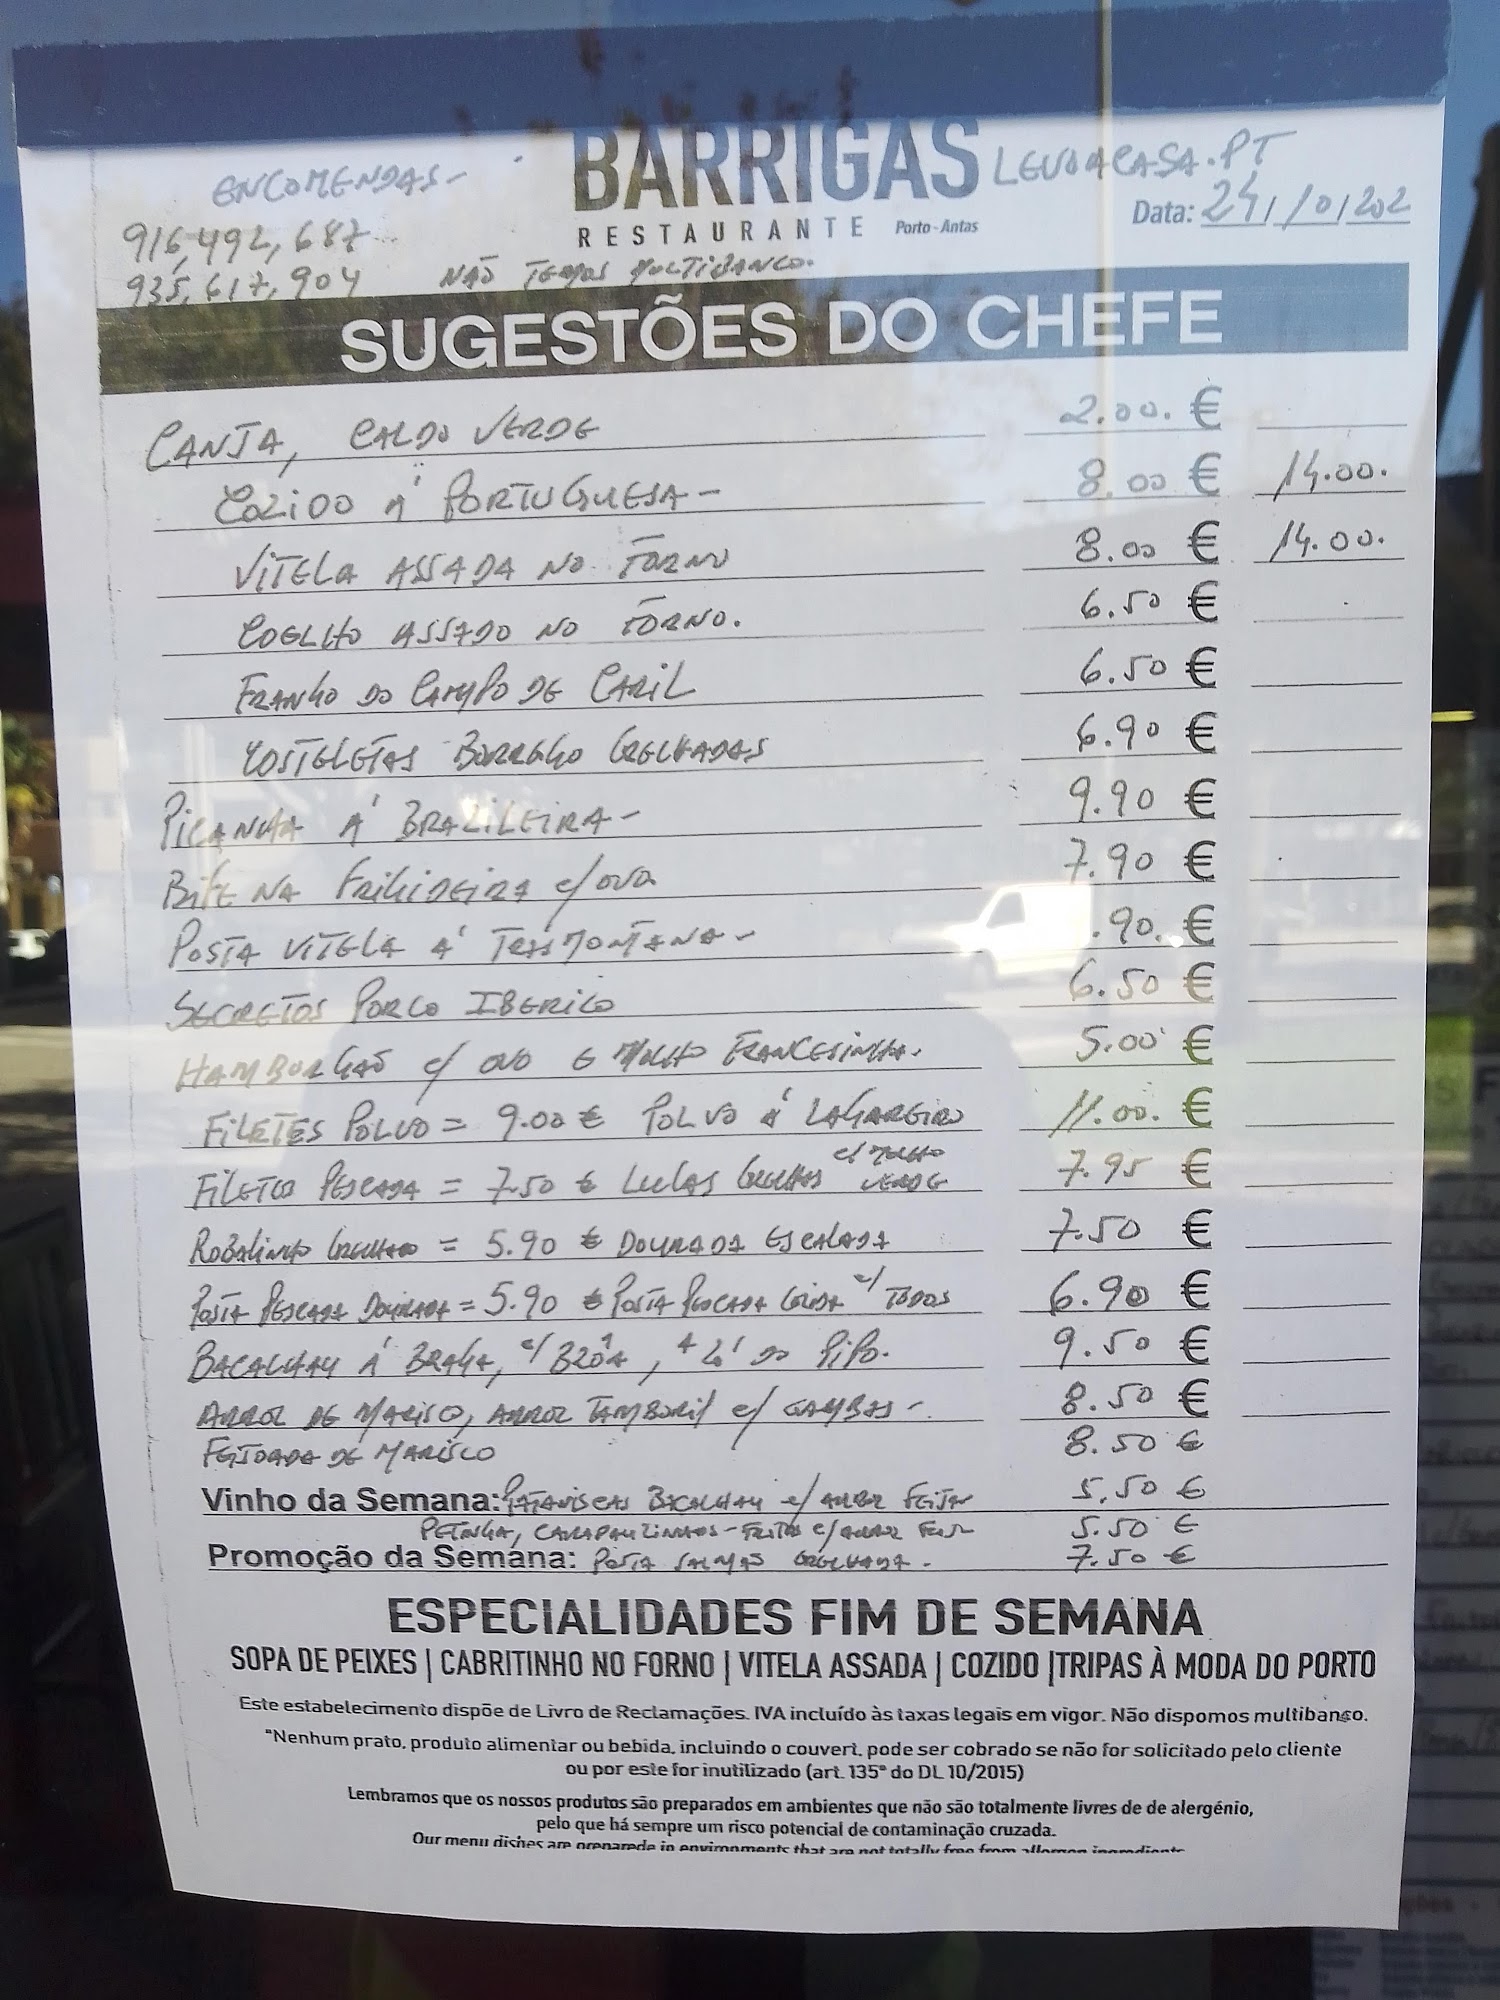 BARRIGAS LEVOACASA.PT
ENCOMENDAS-
RESTAURANTE Porto-Antas
Data: 24/10/202
916,492,687
935,617,904 NÃO TEMOS MULTIBANCO.
SUGESTÕES DO CHEFE
CANJA, CALDO VERDE 2.00. €
COZIDO Á PORTUGUESA - 8.00 € 14.00.
VITELA ASSADA NO FORNO 8.00 € 14.00.
COELHO ASSADO NO FORNO. 6.50 €
FRANGO DO CAMPO DE CARIL 6.50 €
COSTELETAS BORREGO GRELHADAS 6.90 €
PICANHA Á BRAZILEIRA - 9.90 €
BIFE NA FRIGIDEIRA c/ OVO 7.90 €
POSTA VITELA Á TRASMONTANA - .90. €
SECRETOS PORCO IBERICO 6.50 €
HAMBURGÃO c/ OVO E MOLHO FRANCESINHA. 5.00 €
FILETES POLVO = 9.00 € POLVO Á LAGAREIRO 11.00. €
FILETES PESCADA = 7.50 € LULAS GRELHAS c/ MOLHO VERDE 7.95 €
ROBALINHO GRELHADO = 5.90 € DOURADA ESCALADA 7.50 €
POSTA PESCADA DOURADA = 5.90 € POSTA PESCADA COZIDA c/ TODOS 6.90 €
BACALHAU Á BRAGA, c/ BRÔA, Á ZÉ DO PIPO. 9.50 €
ARROZ DE MARISCO, ARROZ TAMBORIL c/ GAMBAS -. 8.50 €
FEIJOADA DE MARISCO 8.50 €
Vinho da Semana: PATANISCAS BACALHAU c/ ARROZ FEIJÃO 5.50 €
PETINGA, CARAPAUZINHOS - FRITOS c/ ARROZ 5.50 €
Promoção da Semana: POSTA SALMÃO GRELHADA. 7.50 €
ESPECIALIDADES FIM DE SEMANA
SOPA DE PEIXES | CABRITINHO NO FORNO | VITELA ASSADA | COZIDO |TRIPAS À MODA DO PORTO
Este estabelecimento dispõe de Livro de Reclamações. IVA incluído às taxas legais em vigor. Não dispomos multibanco.
"Nenhum prato, produto alimentar ou bebida, incluindo o couvert, pode ser cobrado se não for solicitado pelo cliente
ou por este for inutilizado (art. 135º do DL 10/2015)
Lembramos que os nossos produtos são preparados em ambientes que não são totalmente livres de de alergénio,
pelo que há sempre um risco potencial de contaminação cruzada.
Our menu dishes are preparede in environments that are not totally free from allergen ingredients